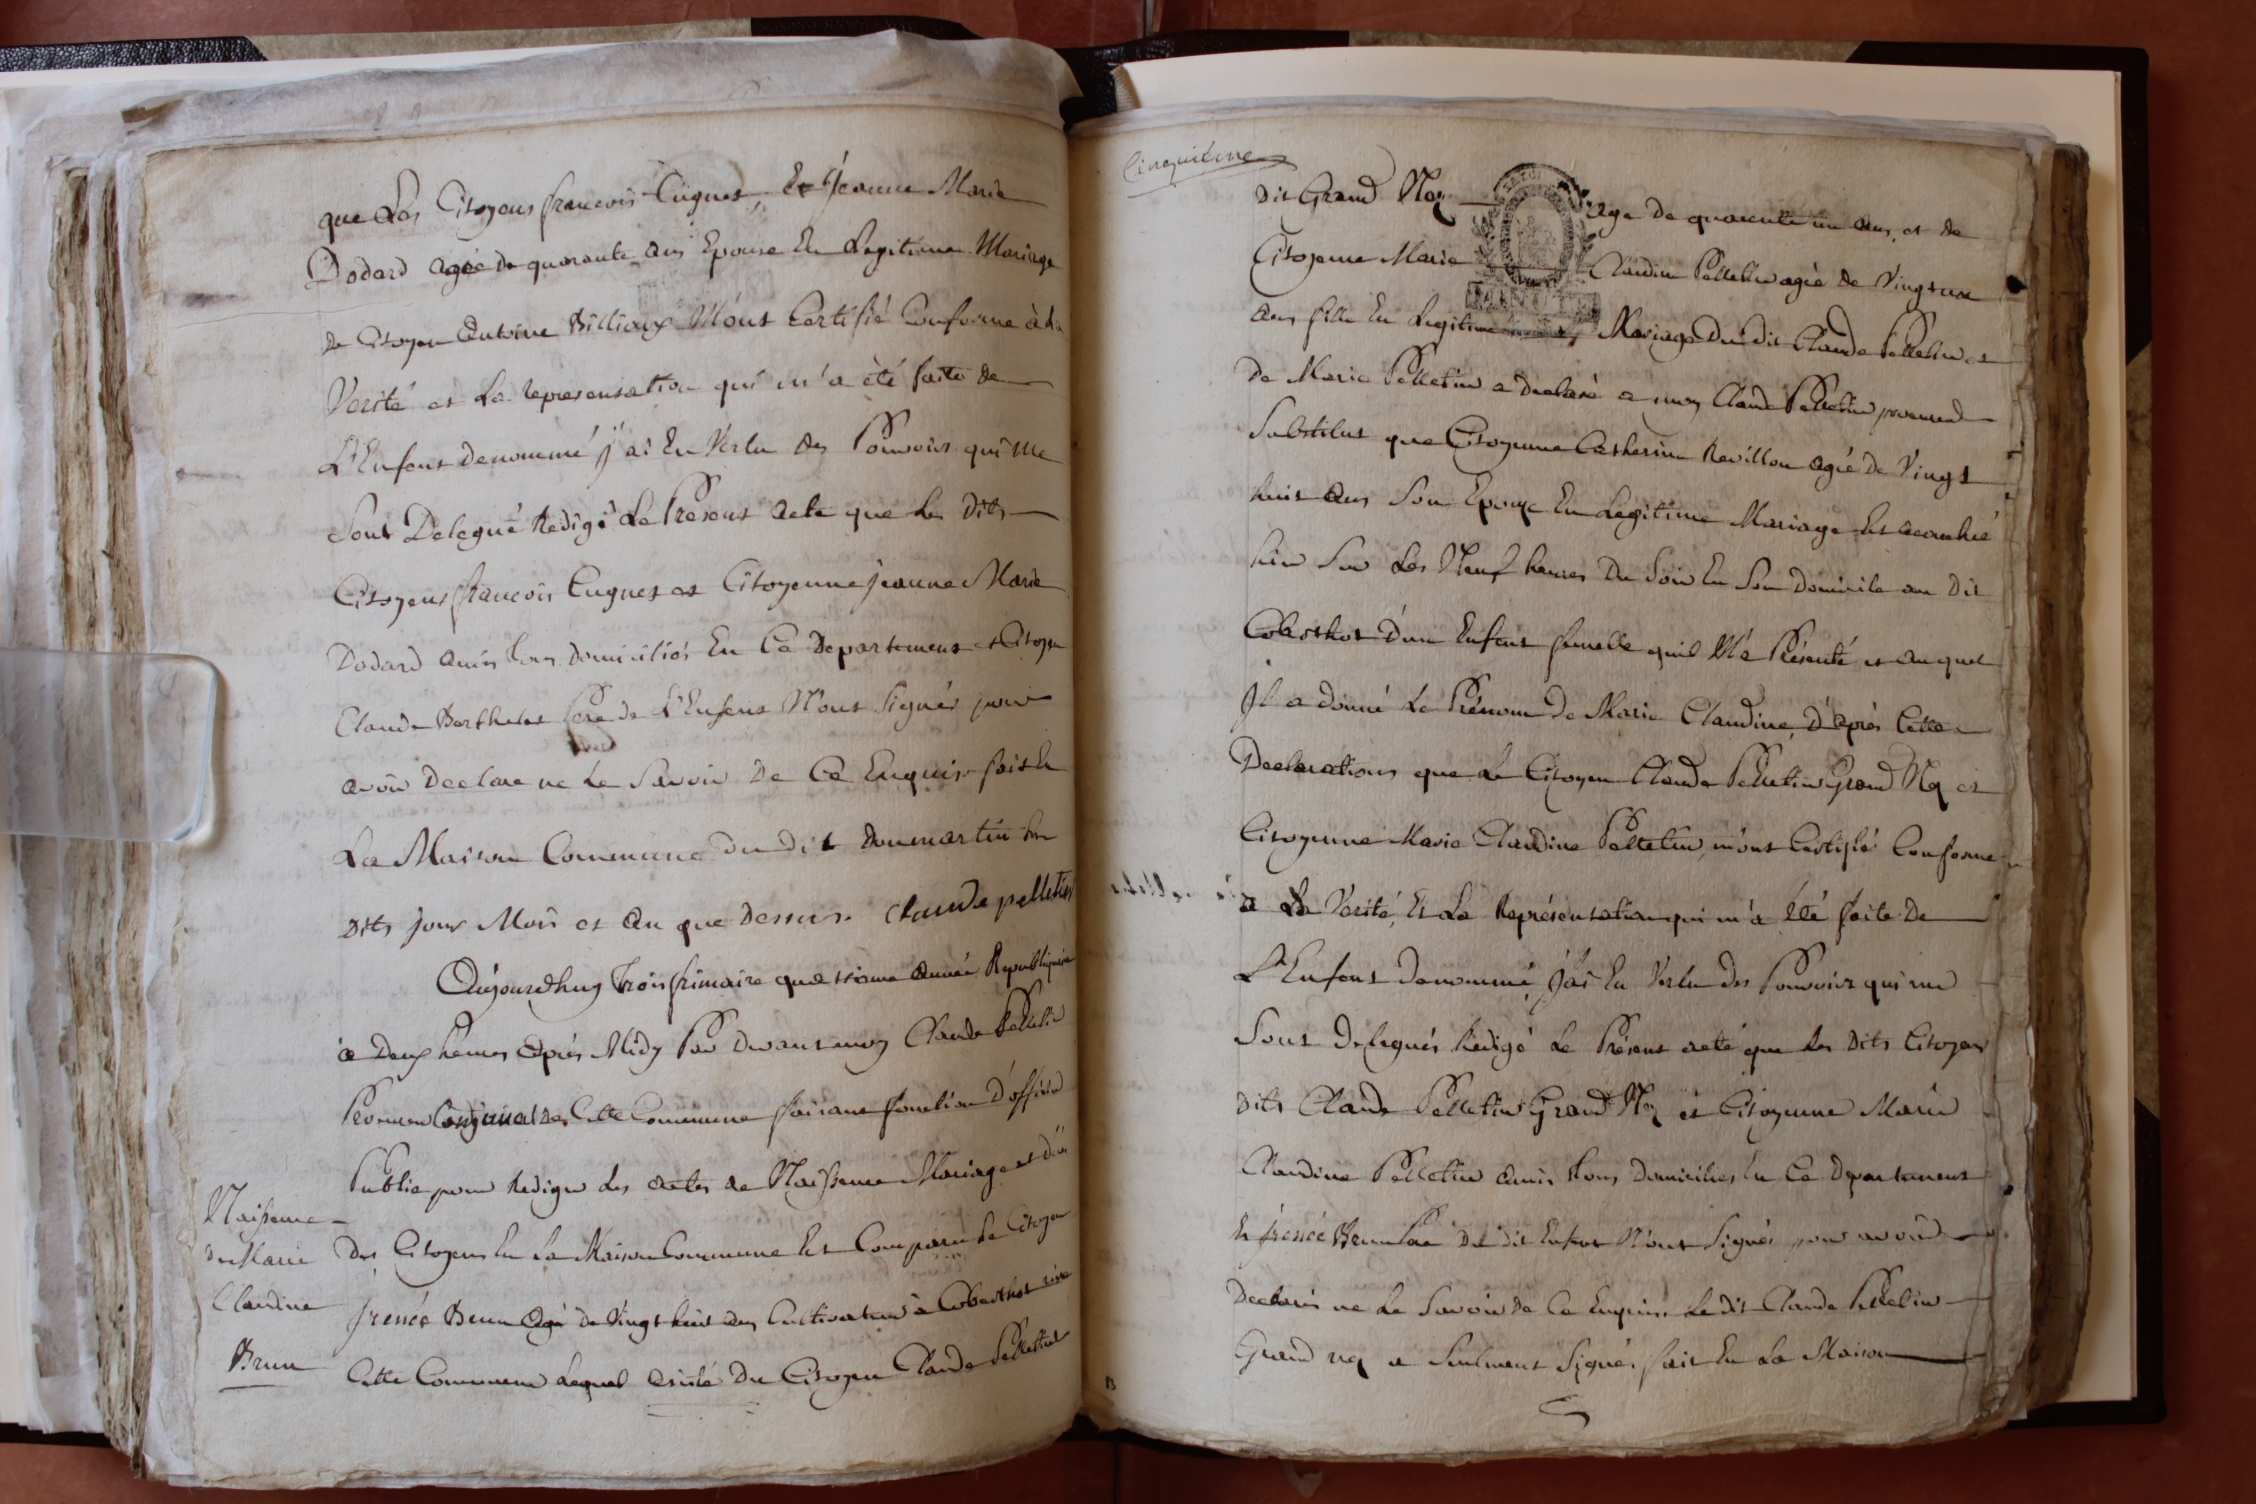 que Les Citoyens francois Cugnet, Et Jeanne Marie
Dodard agée de quarante ans Epouse En Legitime Mariage
de Citoyen Antoine Billioux M'ont Certifié Conforme à La
Verité et La representation qui m'a été faite de
L'Enfant denommé j'ai En Vertu des Pouvoirs qui me
Sont Delegué Redigé Le Present acte que Les Dits
Citoyens francois Cugnet et Citoyenne jeanne Marie
Dodard amis tous domiciliés En Ce Departement et Citoyen
Claude Berthelet Pere de L'Enfant N'ont Signés pour
avoir Declare ne Le Savoir De Ce Enquis fait En
La Maison Commune du Dit Dommartin Les
Dits jour Mois et an que Dessus. Claude pelletin
Aujourdhuy Trois frimaire quatrieme année Republiquaine
a Deux heures Aprés Midy Par Devant moy Claude Pelletin
Cette Commune faisant fonction D'officier
Public pour Rediger Les actes de Naissence Mariage et
Naissence
de Marie
Claudine
Brun
Des Citoyens En La Maison Commune Est Comparu Le Citoyen
frenée Brun Agé de Vingt huit ans Cultivateur à Coberthot
Cette Commune Lequel assisté Du Citoyen Claude Pelletin
Cinquieme
Dit Grand Nez age De quarente un ans, et de
Citoyenne Marie Claudine Pelletin agée de Vingt un
ans fille En Legitime Mariage Du dit Claude Pelletin et
De Marie Pelletin a Declaré a moy Claude Pelletin
Substitut que Citoyenne Catherine Revillon agée De Vingt
huit ans Son Epouze En Legitime Mariage Est acouchée
hier Sur Les Neuf heures Du Soir En Son Domicile au Dit
Coberthot D'un Enfant femelle quil M'a Présenté et auquel
Jl a donné Le Prénom De Marie Claudine, D'aprés Cette
Declarations que Le Citoyen Claude Pelletin Grand Nez et
Citoyenne Marie Claudine Pelletin, m'ont Certifié Conforme
a La Verité, Et La Représentation qui m'a été faite De
L'Enfant denommé, J'ai En Vertu des Pouvoirs qui me
Sont Delegués Redigé Le Présent acte que Les Dits Citoyens
Dits Claude Pelletin Grand Nez et Citoyenne Marie
Claudine Pelletin amis tous Domiciliés En Ce Departement
Et frenée Brun Pere Du dit Enfant N'ont Signés pour avoir
Declarés ne Le Savoir De Ce Enquis. Le Dit Claude Pelletin
Grand nez a Seulment Signé. fait En La Maison